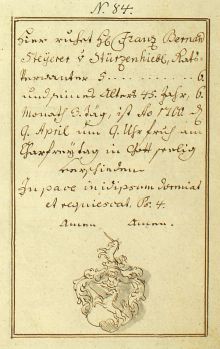 N. 84.
Hier ruhet H: Franz Bernard
Steyerer v Stürzenhiebl, Rats
Verwanter 5 6.
und seines Alters 45. Jahr, 6.
Monath 3. tag, ist Ao 1700 d
9. April um 9. Uhr früh am
Charfreytag in Gott seelig
verschieden.
In pace in idipsum dormiat
et requiescat. Ps. 4.
Amen. Amen.